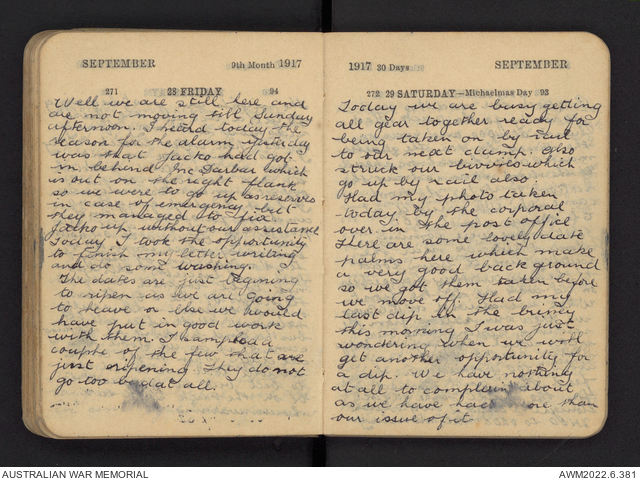 SEPTEMBER 9th Month 1917
271 28 FRIDAY 94
Well we are still here and
are not moving till Sunday
afternoon. I heard today the
reason for the alarm yesterday
was that Jacko had got
in behind Inc Darbar which
is out on the right flank
so we were to go up as reserves
in case of emergency but
they managed to fix
Jacko up without our assistance
Today I took the opportunity
to finish my letter writing
and do some washing.
The dates are just beginning
to ripen as we are going
to leave or else we would
have put in good work
with them. I sampled a
couple of the few that are
just ripening. They do not
go too bad at all.
1917 30 Days SEPTEMBER
272 29 SATURDAY—Michaelmas Day 93
Today we are busy getting
all gear together ready for
being taken on by rail
to our next camp. Also
struck our bivvies which
go up by rail also.
Had my photo taken
today by the corporal
over in the post office
There are some lovely date
palms here which make
a very good back ground
so we got them taken before
we move off. Had my
last dip in the briney
this morning I was just
wondering when we will
get another opportunity for
a dip. We have nothing
at all to complain about
as we have had one than
our issue of it
AUSTRALIAN WAR MEMORIAL
AWM2022.6.381